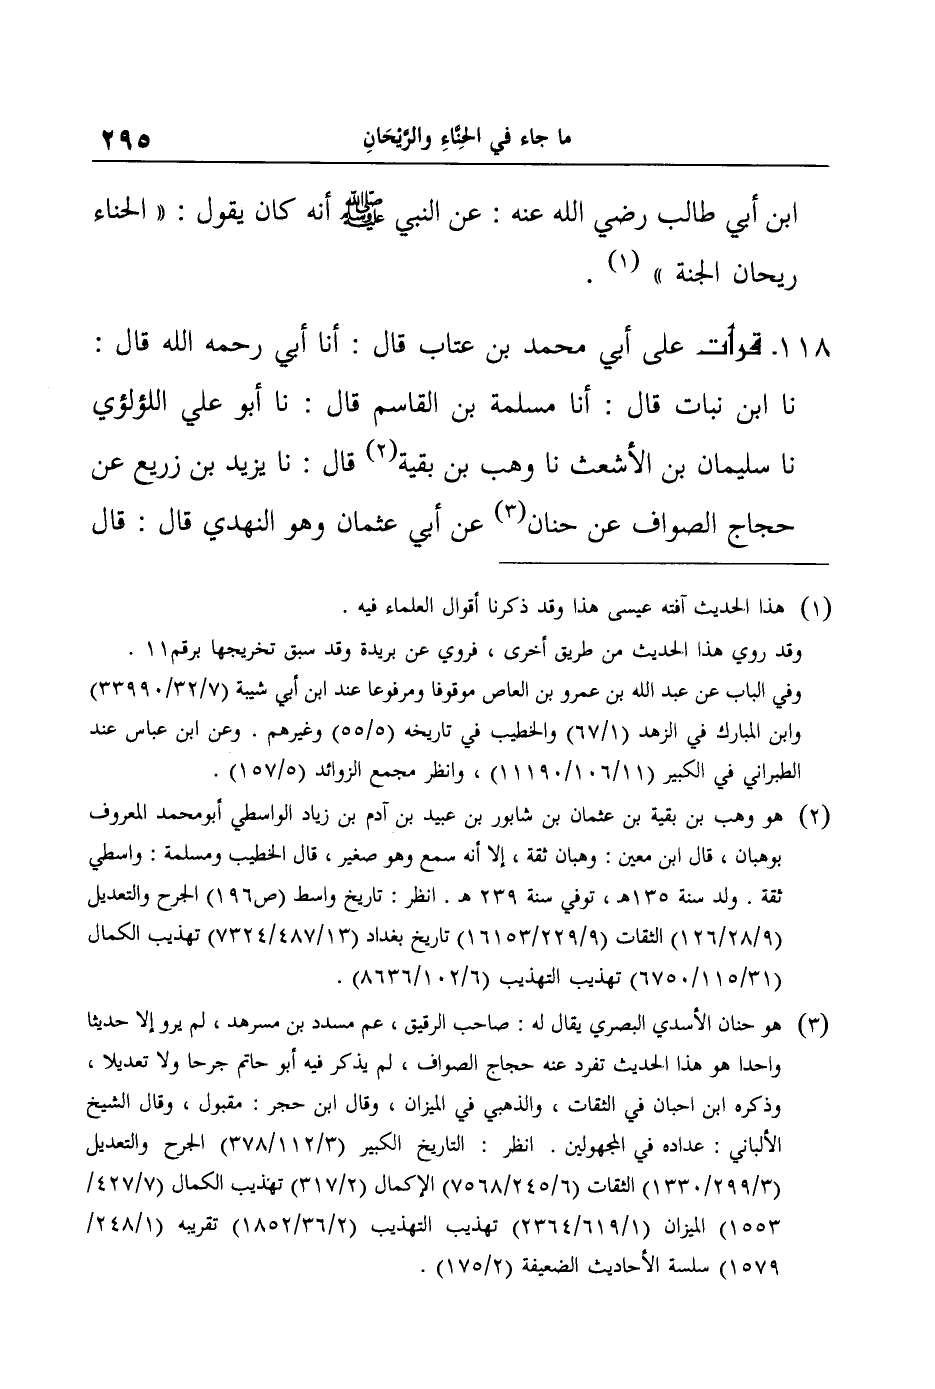 ما جاء في الحِنَّاءِ والرَّيْحَانِ ٢٩٥
ابن أبي طالب رضي الله عنه : عن النبي ﷺ أنه كان يقول : « الحناء
ريحان الجنة » (١) .
١١٨. قرأت على أبي محمد بن عتاب قال : أنا أبي رحمه الله قال :
نا ابن نبات قال : أنا مسلمة بن القاسم قال : نا أبو علي اللؤلؤي
نا سليمان بن الأشعث نا وهب بن بقية(٢) قال : نا يزيد بن زريع عن
حجاج الصواف عن حنان(٣) عن أبي عثمان وهو النهدي قال : قال
(١) هذا الحديث آفته عيسى هذا وقد ذكرنا أقوال العلماء فيه .
وقد روي هذا الحديث من طريق أخرى ، فروي عن بريدة وقد سبق تخريجها برقم١١ .
وفي الباب عن عبد الله بن عمرو بن العاص موقوفا ومرفوعا عند ابن أبي شيبة (٣٣٩٩٠/٣٢/٧)
وابن المبارك في الزهد (٦٧/١) والخطيب في تاريخه (٥٥/٥) وغيرهم . وعن ابن عباس عند
الطبراني في الكبير (١١١٩٠/١٠٦/١١) ، وانظر مجمع الزوائد (١٥٧/٥) .
(٢) هو وهب بن بقية بن عثمان بن شابور بن عبيد بن آدم بن زياد الواسطي أبومحمد المعروف
بوهبان ، قال ابن معين : وهبان ثقة ، إلا أنه سمع وهو صغير ، قال الخطيب ومسلمة : واسطي
ثقة . ولد سنة ١٣٥هـ ، توفي سنة ٢٣٩ هـ . انظر : تاريخ واسط (ص١٩٦) الجرح والتعديل
(١٢٦/٢٨/٩) الثقات (١٦١٥٣/٢٢٩/٩) تاريخ بغداد (٧٣٢٤/٤٨٧/١٣) تهذيب الكمال
(٦٧٥٠/١١٥/٣١) تهذيب التهذيب (٨٦٣٦/١٠٢/٦) .
(٣) هو حنان الأسدي البصري يقال له : صاحب الرقيق ، عم مسدد بن مسرهد ، لم يرو إلا حديثا
واحدا هو هذا الحديث تفرد عنه حجاج الصواف ، لم يذكر فيه أبو حاتم جرحا ولا تعديلا ،
وذكره ابن احبان في الثقات ، والذهبي في الميزان ، وقال ابن حجر : مقبول ، وقال الشيخ
الألباني : عداده في المجهولين . انظر : التاريخ الكبير (٣٧٨/١١٢/٣) الجرح والتعديل
(١٣٣٠/٢٩٩/٣) الثقات (٧٥٦٨/٢٤٥/٦) الإكمال (٣١٧/٢) تهذيب الكمال (٤٢٧/٧/
١٥٥٣) الميزان (٢٣٦٤/٦١٩/١) تهذيب التهذيب (١٨٥٢/٣٦/٢) تقريبه (٢٤٨/١/
١٥٧٩) سلسة الأحاديث الضعيفة (١٧٥/٢) .